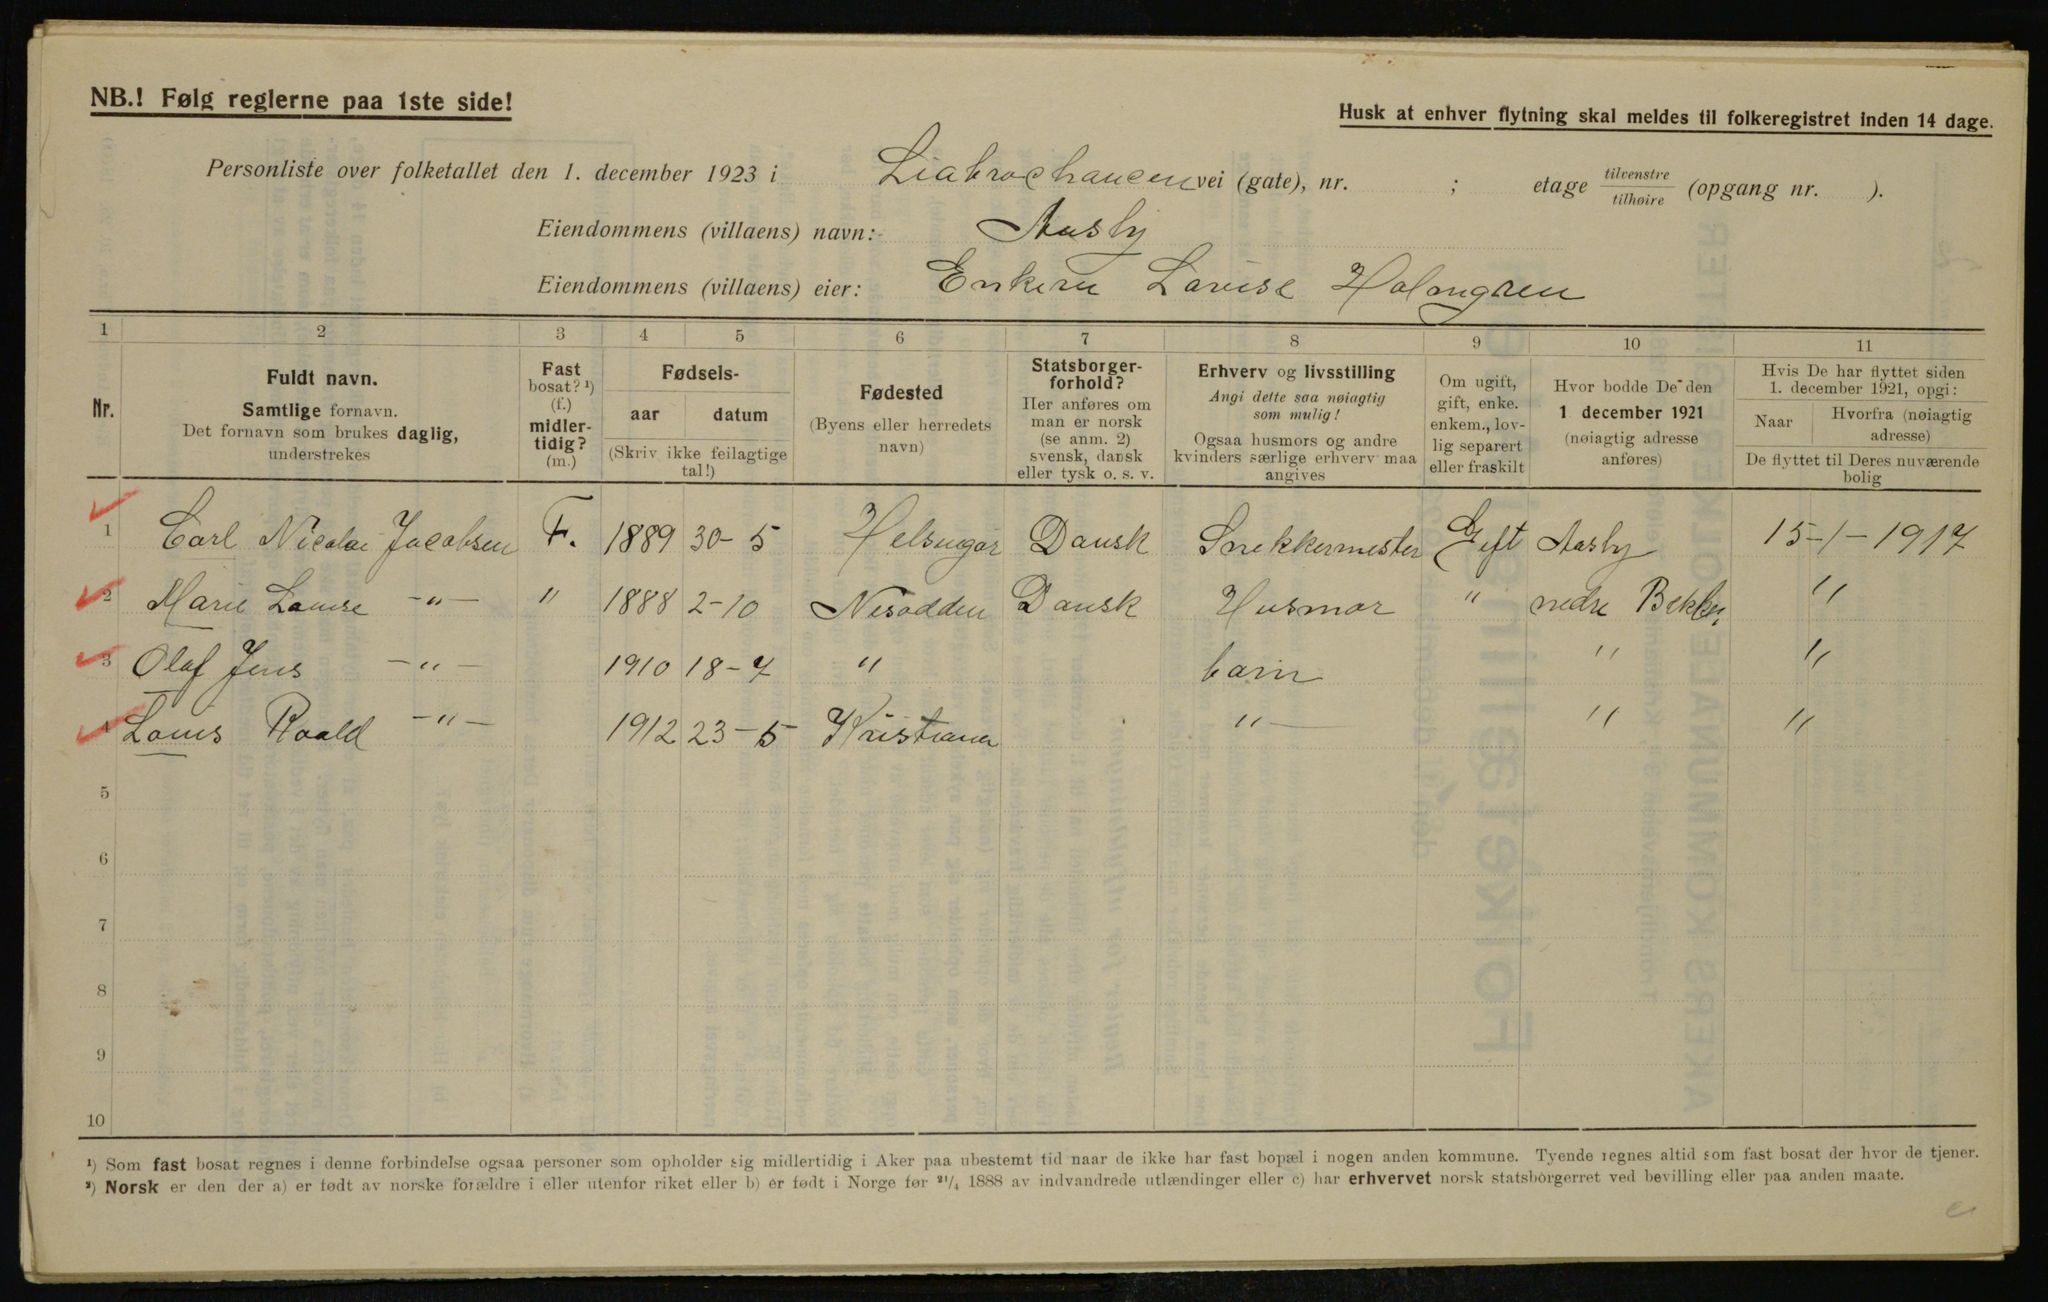 NB.! Følg reglerne paa 1ste side!
Husk at enhver flytning skal meldes til folkeregistret inden 14 dage.
Personliste over folketallet den 1. december 1923 i Liabrochauceen vei (gate), nr. ; etage tilvenstre / tilhøire (opgang nr. ).
Eiendommens (villaens) navn: Aasby
Eiendommens (villaens) eier: Enkeru Lovise Holmgren
1 2 3 4 5 6 7 8 9 10 11
Nr.
Fuldt navn.
Samtlige fornavn.
Det fornavn som brukes daglig,
understrekes
Fast
bosat? ¹)
(f.)
midler-
tidig?
(m.)
Fødsels-
aar datum
(Skriv ikke feilagtige
tal!)
Fødested
(Byens eller herredets
navn)
Statsborger-
forhold?
Her anføres om
man er norsk
(se anm. 2)
svensk, dansk
eller tysk o. s. v.
Erhverv og livsstilling
Angi dette saa nøiagtig
som mulig!
Ogsaa husmors og andre
kvinders særlige erhverv maa
angives
Om ugift,
gift, enke.
enkem., lov-
lig separert
eller fraskilt
Hvor bodde De den
1 december 1921
(nøiagtig adresse
anføres)
Hvis De har flyttet siden
1. december 1921, opgi:
Naar Hvorfra (nøiagtig
adresse)
De flyttet til Deres nuværende
bolig
1 Carl Nicolai Jacobsen F. 1889 30-5 Helsingør Dansk Snekkermester Gift Aasby 15-1-1917
2 Marie Louise -"- " 1888 2-10 Nesodden Dansk Husmor " nedre Bekke, "
3 Olaf Jens -"- 1910 18-7 " barn " "
4 Louis Roald -"- 1912 23-5 Kristiania "- " "
5
6
7
8
9
10
¹) Som fast bosat regnes i denne forbindelse ogsaa personer som opholder sig midlertidig i Aker paa ubestemt tid naar de ikke har fast bopæl i nogen anden kommune. Tyende regnes altid som fast bosat der hvor de tjener.
²) Norsk er den der a) er født av norske forældre i eller utenfor riket eller b) er født i Norge før ²¹/₄ 1888 av indvandrede utlændinger eller c) har erhvervet norsk statsborgerret ved bevilling eller paa anden maate.